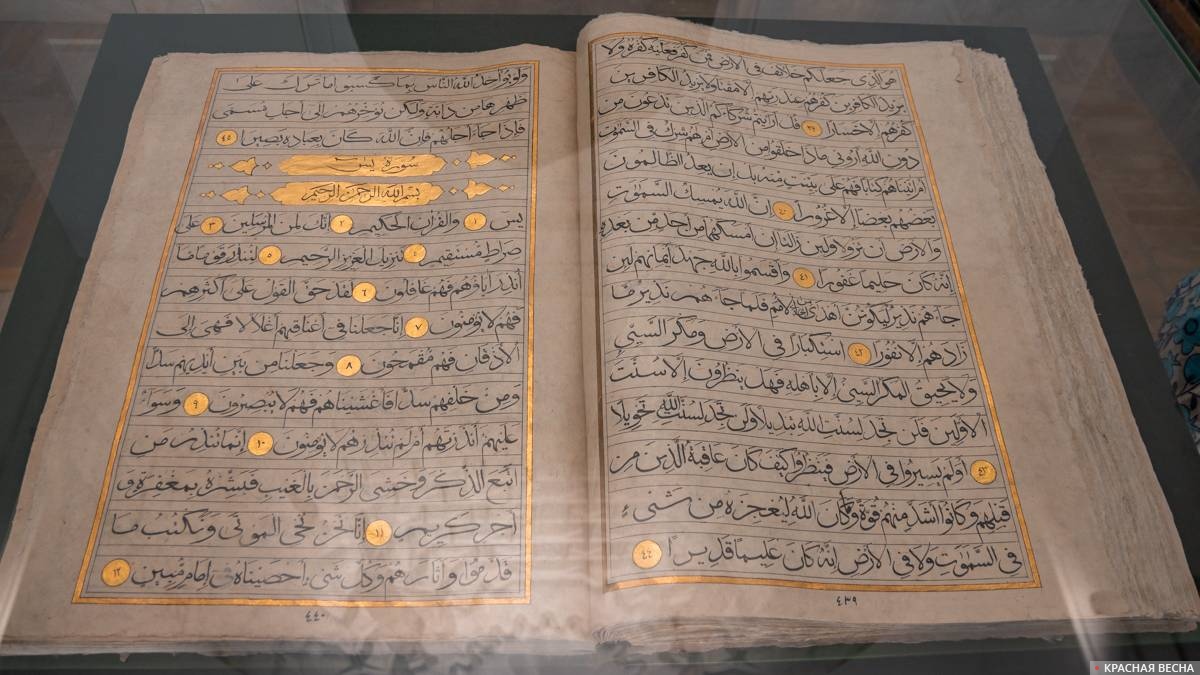 هو الذي جعلكم خلائف في الارض فمن كفر فعليه كفره ولا
يزيد الكافرين كفرهم عند ربهم الا مقتا ولا يزيد الكافرين
كفرهم الا خسارا ٣٩ قل ارايتم شركاءكم الذين تدعون من
دون الله أروني ماذا خلقوا من الارض ام لهم شرك في السموت
ام اتيناهم كتابا فهم على بينت منه بل ان يعد الظالمون
بعضهم بعضا الا غرورا ٤٠ ان الله يمسك السموت
والارض ان تزولا ولئن زالتا ان امسكهما من احد من بعده
إنه كان حليما غفورا ٤١ واقسموا بالله جهد ايمانهم لئن
جاءهم نذير ليكونن اهدى من احدى الامم فلما جاءهم نذير ما
زادهم الا نفورا ٤٢ استكبارا في الارض ومكر السيئ
ولا يحيق المكر السيئ الا باهله فهل ينظرون الا سنت
الاولين فلن تجد لسنت الله تبديلا ولن تجد لسنت الله تحويلا
٤٣ اولم يسيروا في الارض فينظروا كيف كان عاقبة الذين من
قبلهم وكانوا اشد منهم قوة وما كان الله ليعجزه من شيء
في السموت ولا في الارض انه كان عليما قديرا ٤٤
٤٣٩
ولو يؤاخذ الله الناس بما كسبوا ما ترك على
ظهرها من دابة ولكن يؤخرهم الى أجل مسمى
فإذا جاء اجلهم فإن الله كان بعباده بصيرا ٤٥
سورة يس
بسم الله الرحمن الرحيم
يس ١ والقرآن الحكيم ٢ إنك لمن المرسلين ٣ على
صراط مستقيم ٤ تنزيل العزيز الرحيم ٥ لتنذر قوما ما
أنذر آباؤهم فهم غافلون ٦ لقد حق القول على اكثرهم
فهم لا يؤمنون ٧ إنا جعلنا في أعناقهم أغلالا فهي إلى
الاذقان فهم مقمحون ٨ وجعلنا من بين أيديهم سدا
ومن خلفهم سدا فأغشيناهم فهم لا يبصرون ٩ وسواء
عليهم أنذرتهم أم لم تنذرهم لا يؤمنون ١٠ إنما تنذر من
اتبع الذكر وخشي الرحمن بالغيب فبشره بمغفرة و
أجر كريم ١١ إنا نحن نحي الموتى ونكتب ما
قدموا وآثارهم وكل شيء احصيناه في إمام مبين ١٢
٤٤٠
КРАСНАЯ ВЕСНА